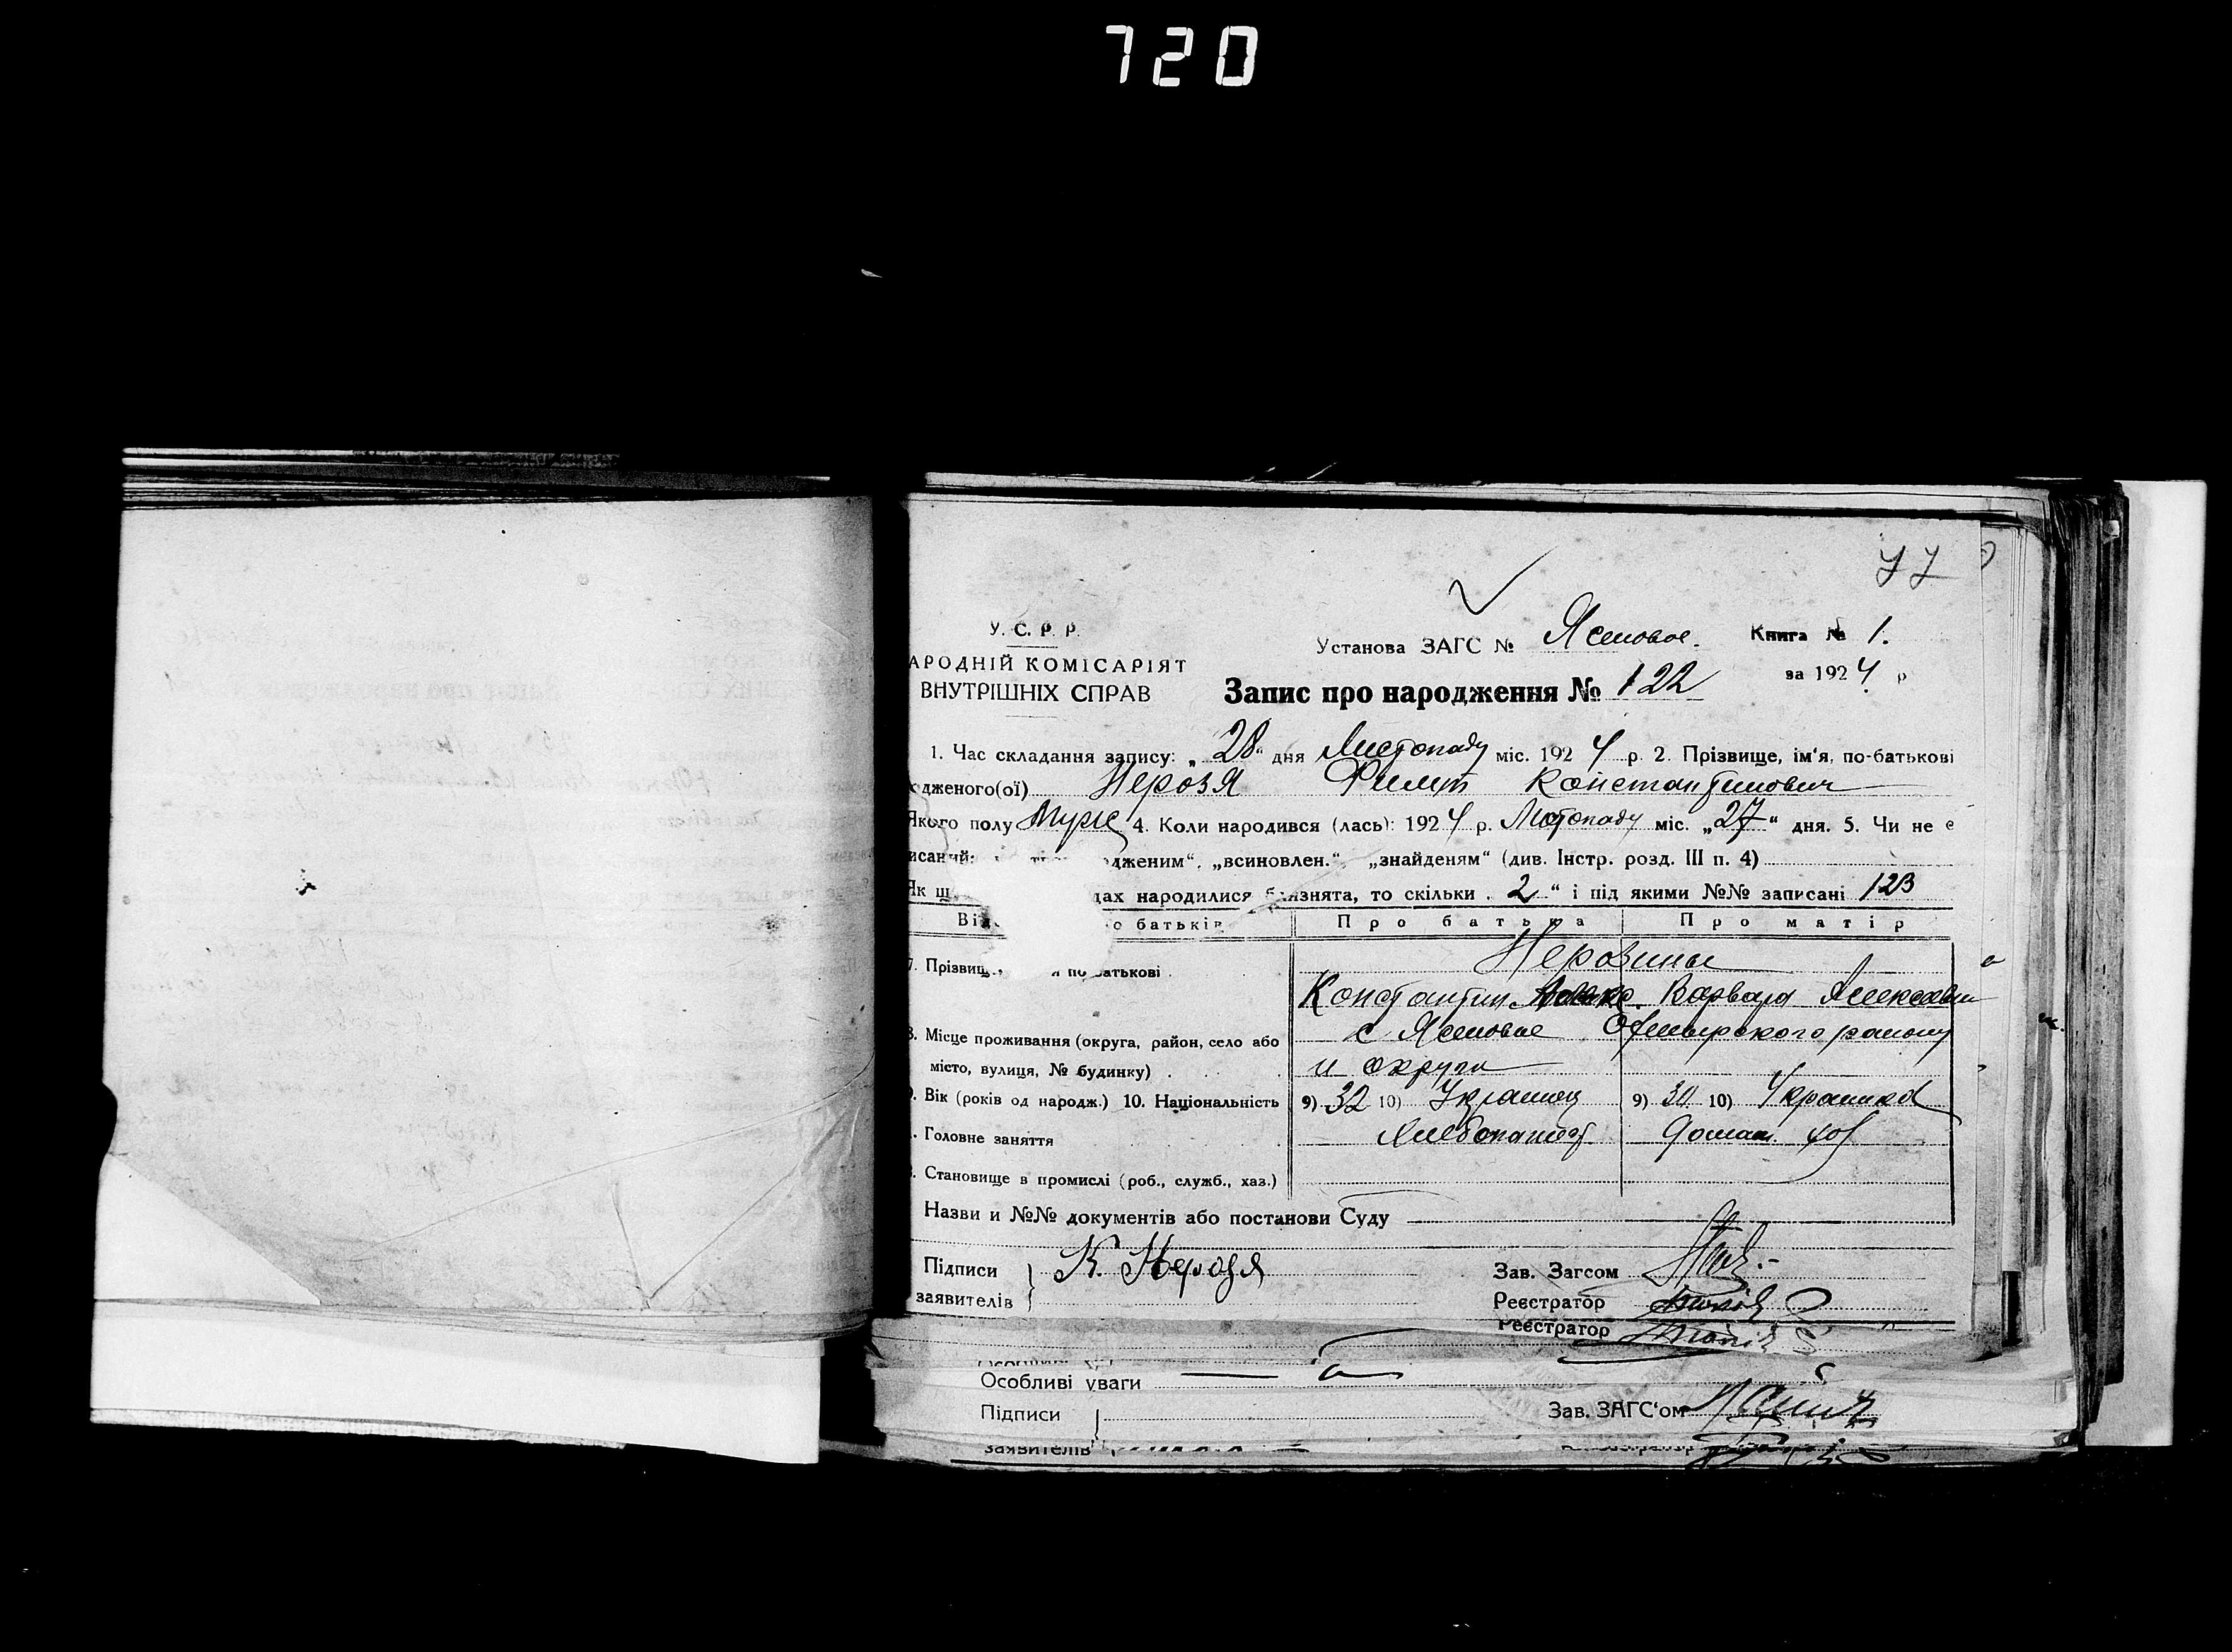 720
77
У. С. Р. Р.
АРОДНІЙ КОМІСАРІЯТ
ВНУТРІШНІХ СПРАВ
Установа ЗАГС № Ясеновое. Книга № 1.
за 1924 р
Запис про народження № 122
1. Час складання запису: „28“ дня Листопаду міс. 1924 р. 2. Прізвище, ім'я, по-батькові
дженого(ої) Нерозя Филип Константинович
Якого полу Муж 4. Коли народився (лась): 1924 р. Листопаду міс. „27“ дня. 5. Чи не є
исаний: дженим“, „всиновлен.“, „знайденям“ (див. Інстр. розд. III п. 4)
Як дах народилися близнята, то скільки „2“ і під якими №№ записані 123
Від о батьків Про батька Про матір
7. Прізвищ по батькові
Константин Варвара
8. Місце проживання (округа, район, село або с Ясеновое району
місто, вулиця, № будинку) и округи
Вік (років од народж.) 10. Національність 9) 32 10) Украинец 9) 30 10) Украинка
Головне заняття Хлебопашец Домаш. хоз
Становище в промислі (роб., служб., хаз.)
Назви и №№ документів або постанови Суду
Підписи К. Нерозя Зав. Загсом
заявителів Реєстратор
Реєстратор
Особливі уваги
Підписи Зав. ЗАГС'ом
заявителів